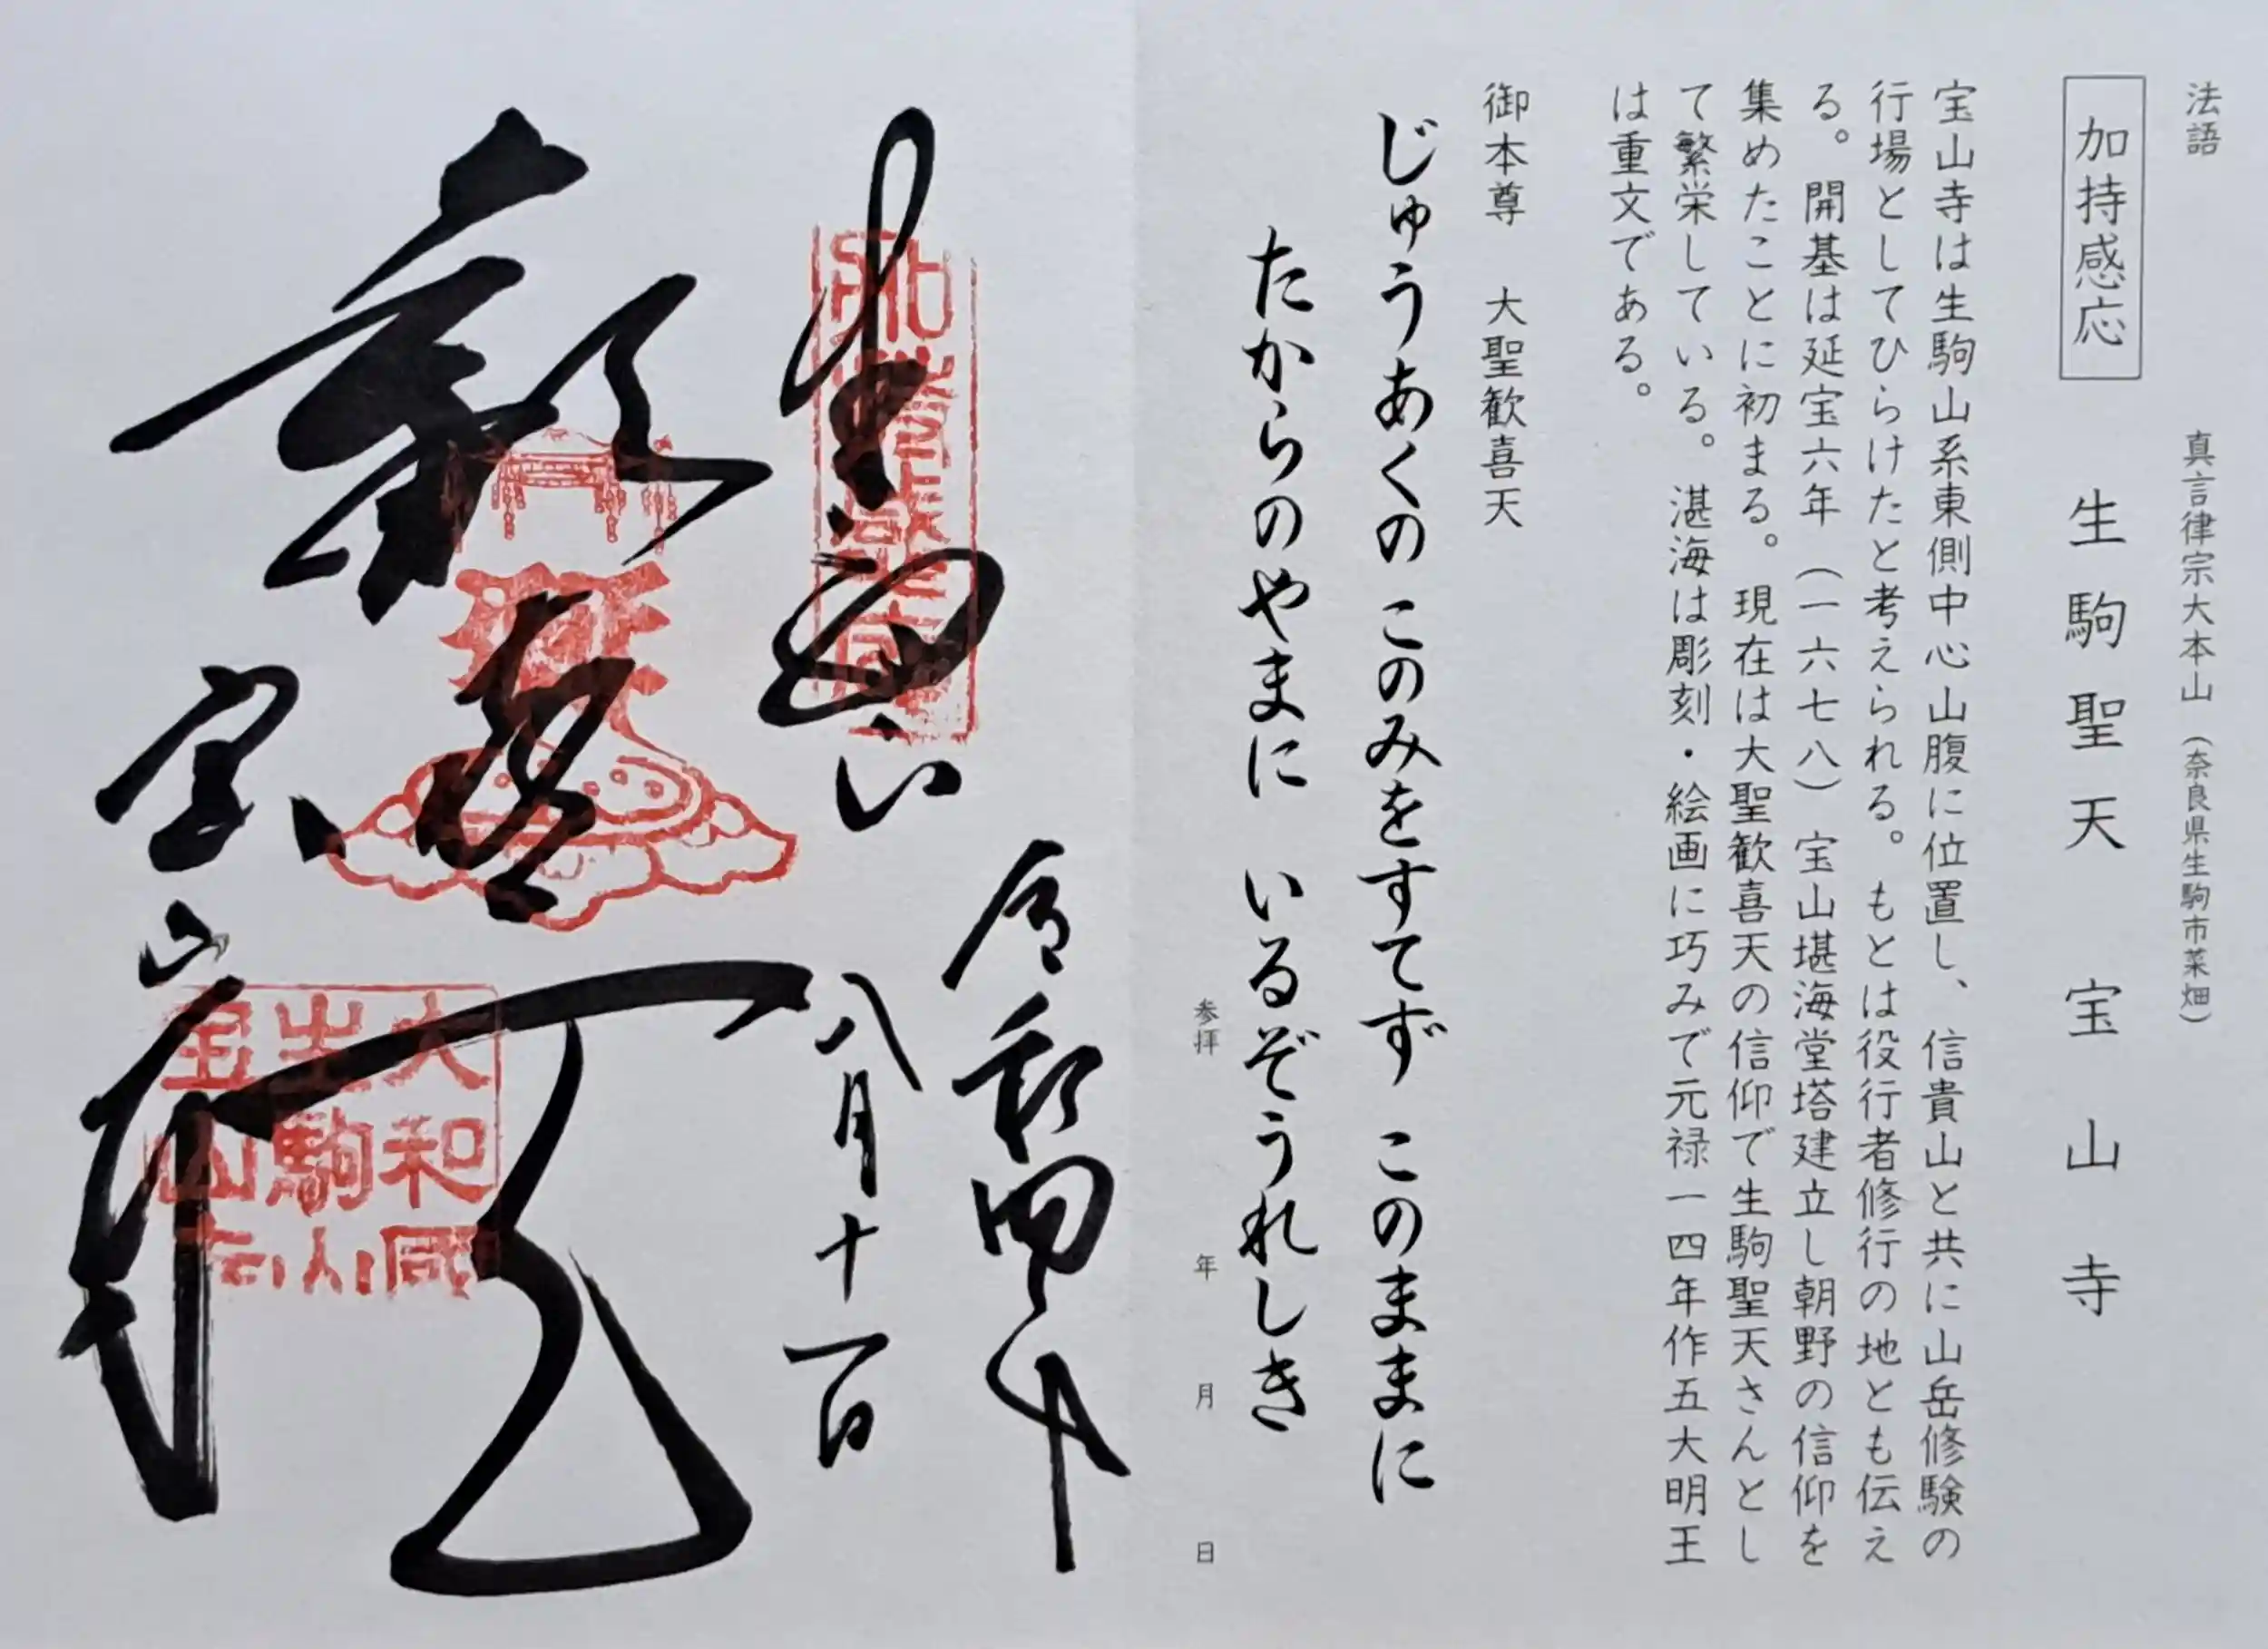 法語
真言律宗大本山（奈良県生駒市菜畑）
加持感応
生駒聖天 宝山寺
宝山寺は生駒山系東側中心山腹に位置し、信貴山と共に山岳修験の
行場としてひらけたと考えられる。もとは役行者修行の地とも伝え
る。開基は延宝六年（一六七八）宝山堪海堂塔建立し朝野の信仰を
集めたことに初まる。現在は大聖歓喜天の信仰で生駒聖天さんとし
て繁栄している。湛海は彫刻・絵画に巧みで元禄一四年作五大明王
は重文である。
御本尊 大聖歓喜天
じゅうあくの このみをすてず このままに
たからのやまに いるぞうれしき
参拝 年 月 日
令和四年
八月十一日
生駒山
歓喜天
宝山寺
大和国
生駒山
宝山寺